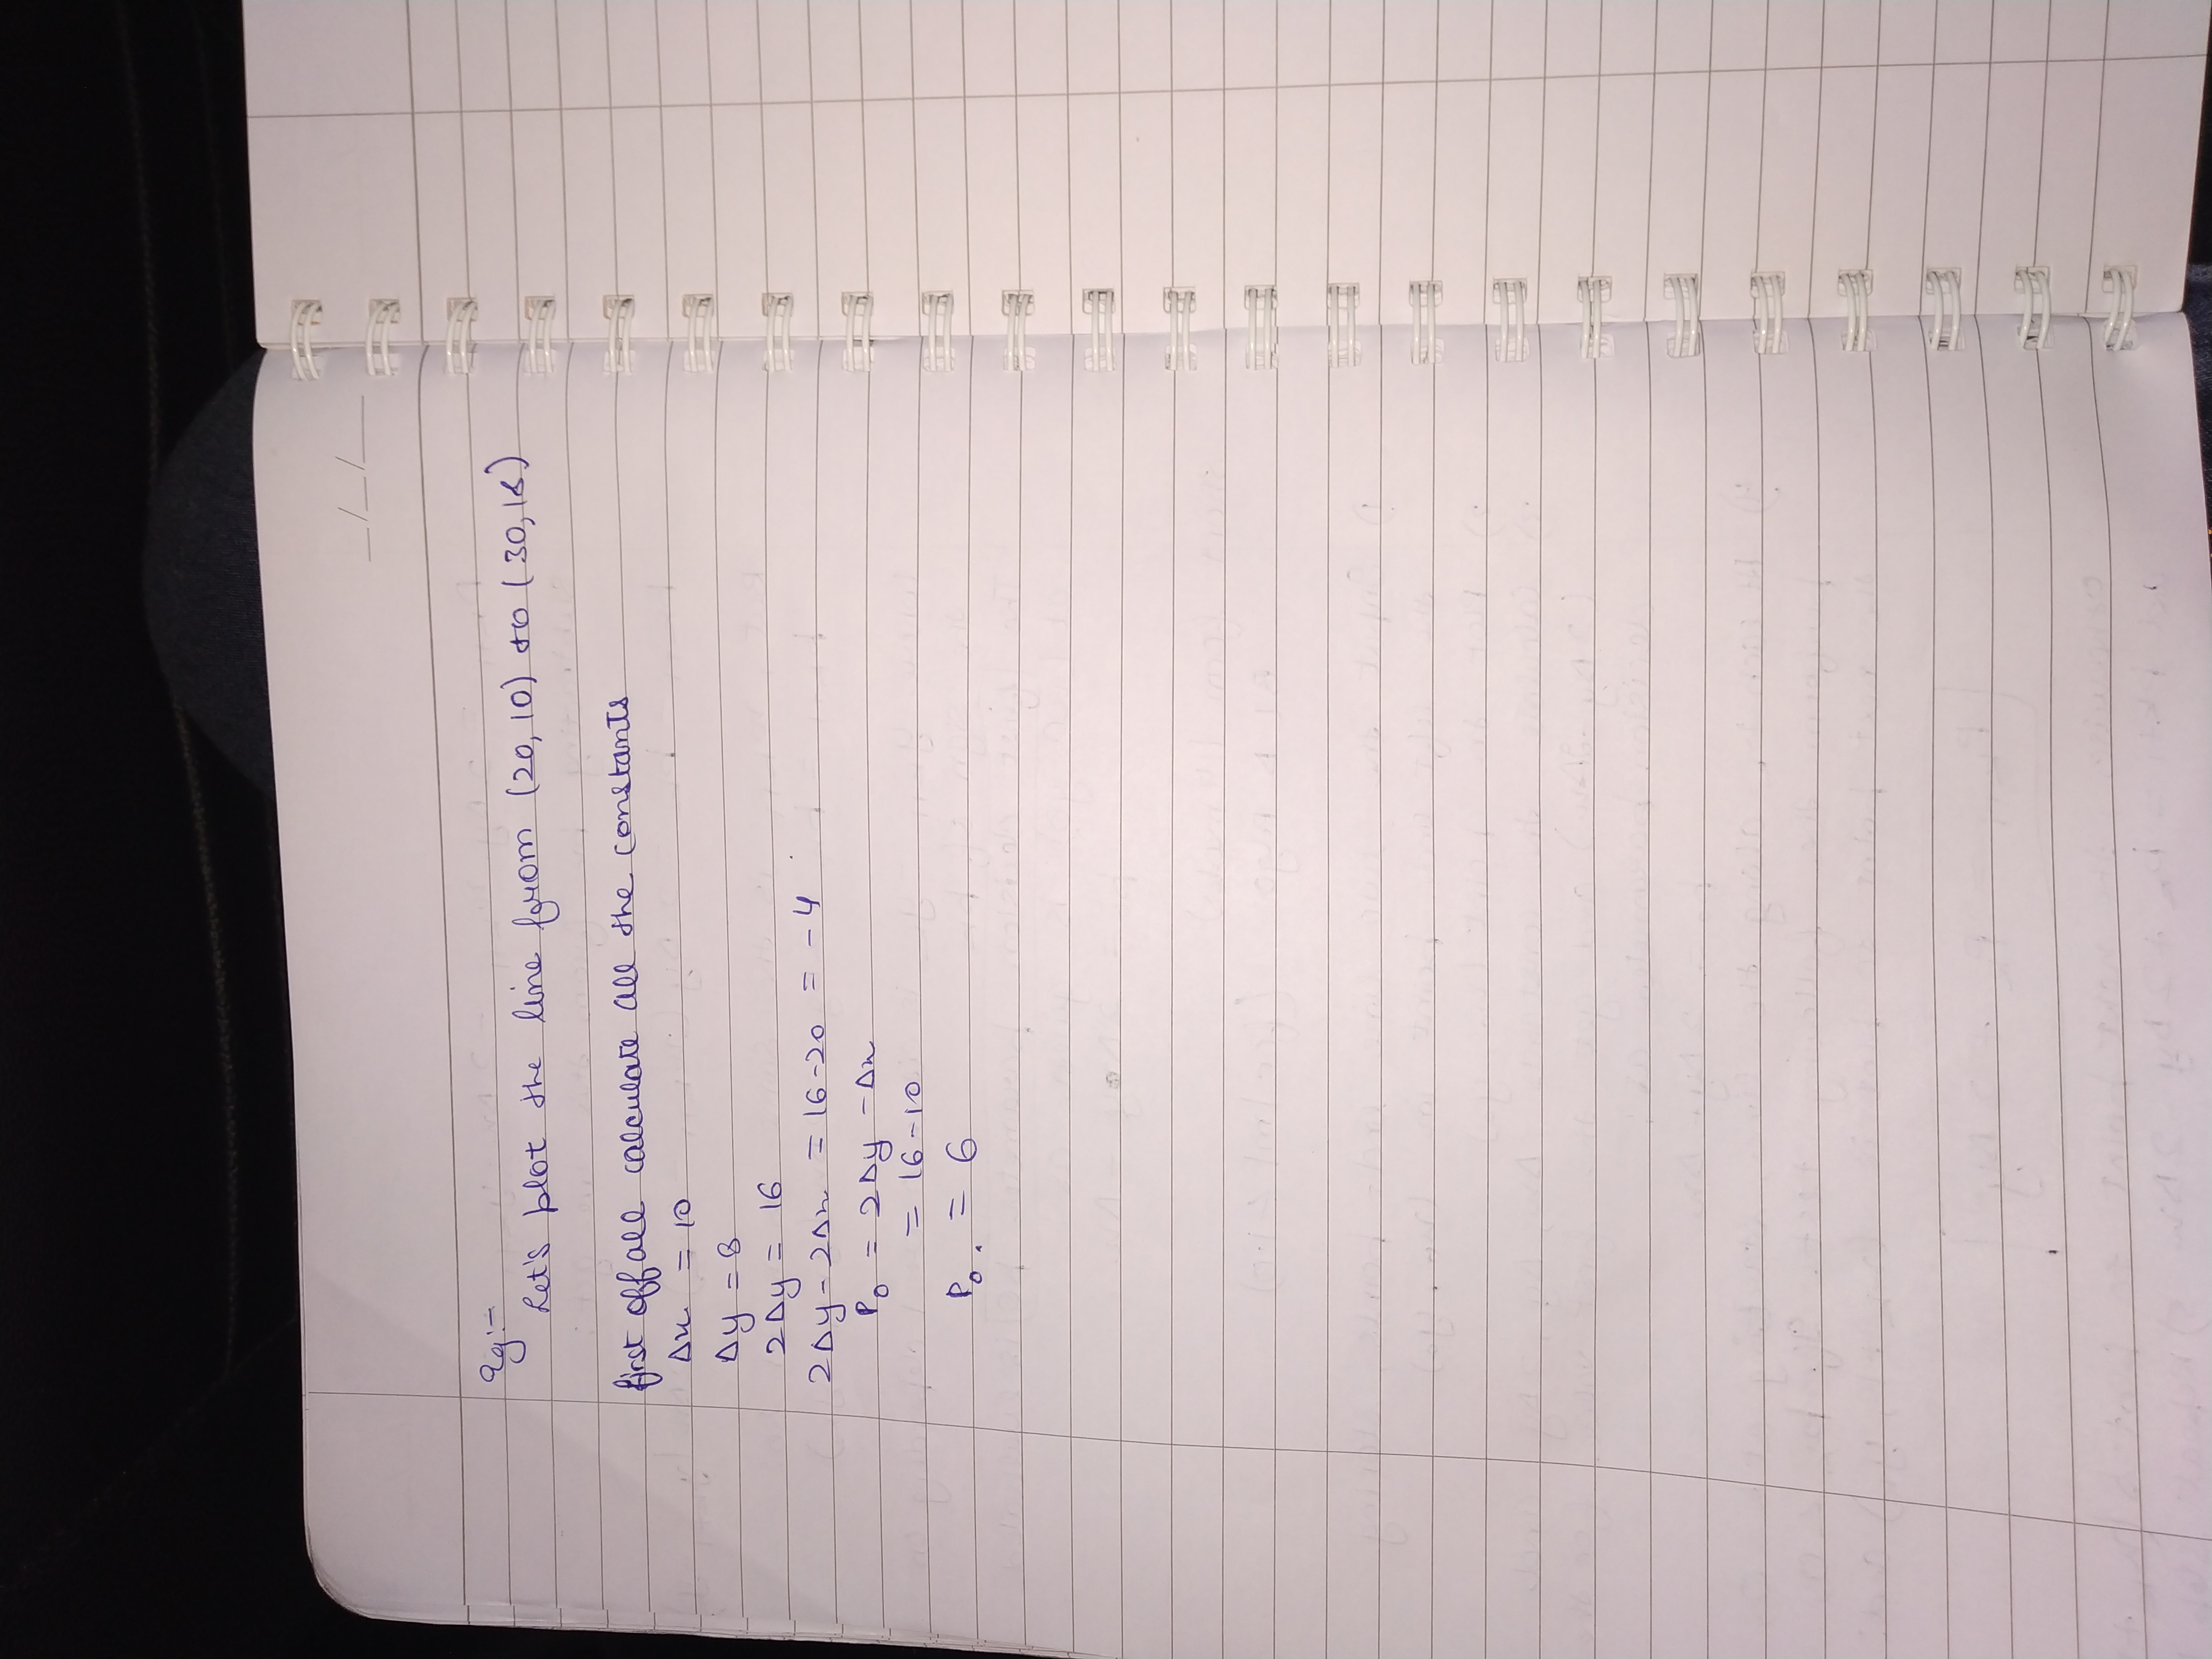 eg:-
Let's plot the line from (20,10) to (30,18)
first off all calculate all the constants
Δx = 10
Δy = 8
2Δy = 16
2Δy - 2Δx = 16-20 = -4
P₀ = 2Δy - Δx
= 16-10
P₀. = 6
_/_/_